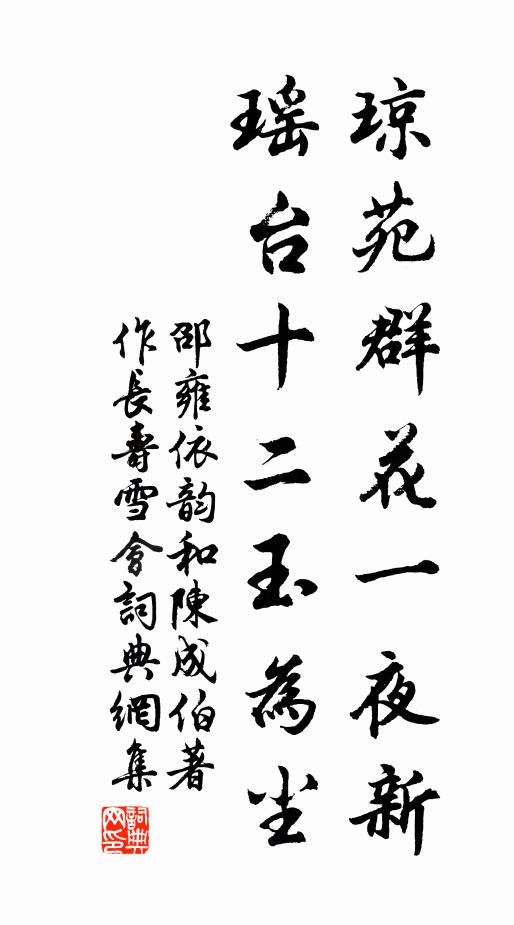 琼苑群花一夜新
瑶台十二玉為尘
邵雍依韵和陳成伯著
作長壽雪會詞典網集
詞典网印